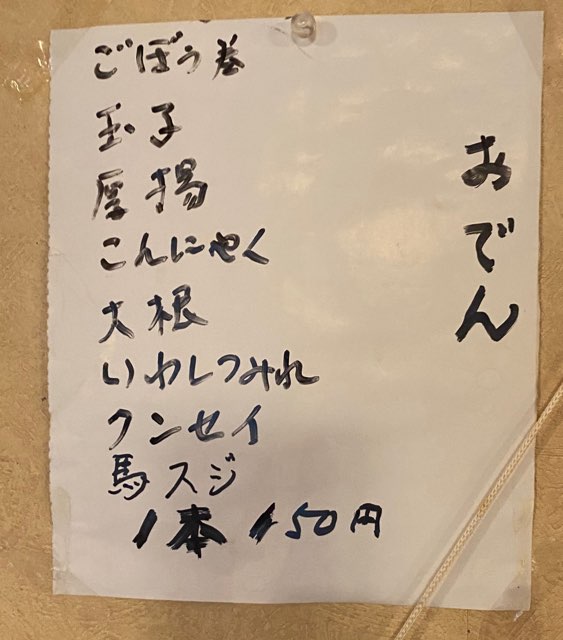 おでん
ごぼう巻
玉子
厚揚
こんにゃく
大根
いわしつみれ
クンセイ
馬スジ
1本 150円